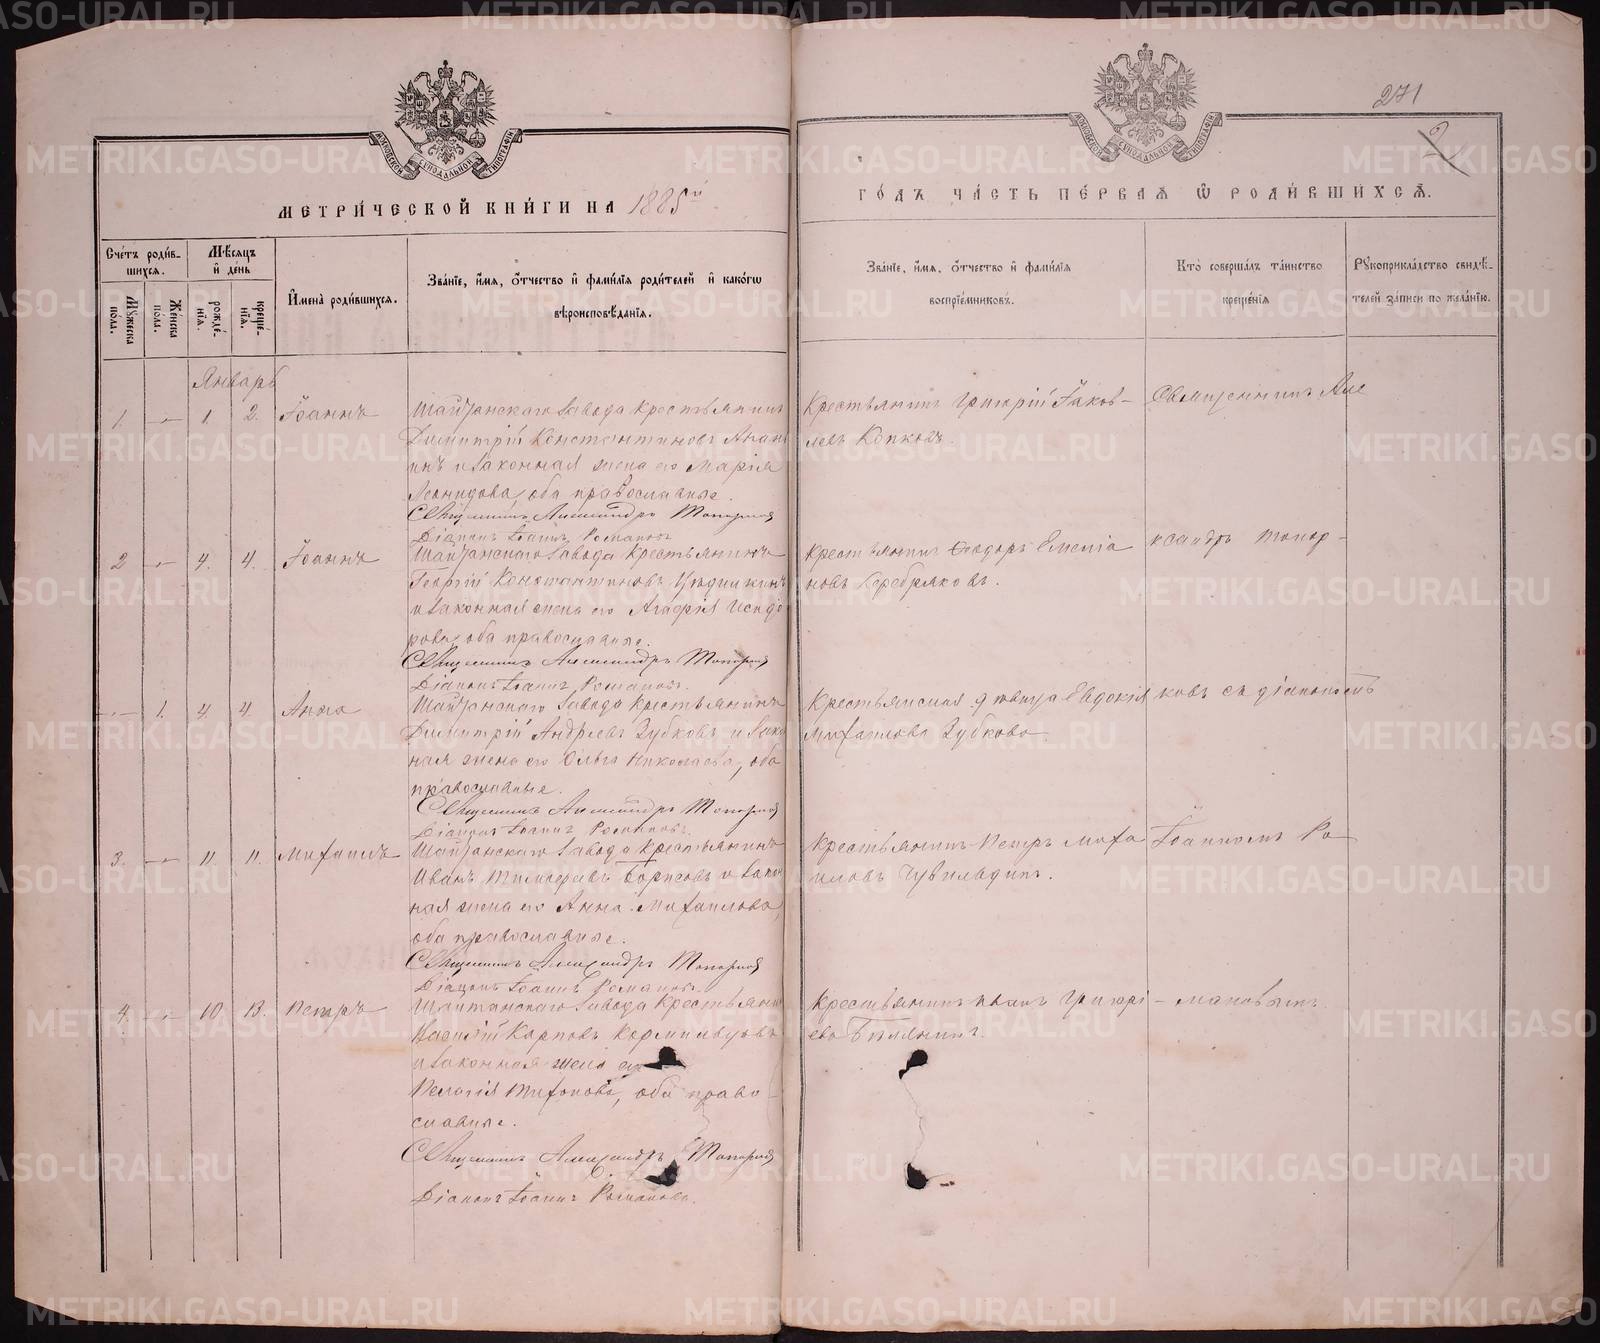 271
2
МЕТРИЧЕСКОЙ КНИГИ НА 1885й
ГОДЪ ЧАСТЬ ПЕРВАЯ Ѡ РОДИВШИХСѦ.
Счетъ родившихся.
Мѣсяцъ и день
Мужеска пола.
Женска пола.
рожденія.
крещенія.
Имена родившихся.
Званіе, имя, отчество и фамилія родителей и какогѡ
вѣроисповѣданія.
Званіе, имя, отчество и фамилія
воспріемниковъ.
Кто совершалъ таинство
крещенія
Рукоприкладство свидѣ-
телей записи по желанію.
Январь
1. 1. 2. Іоаннъ
Шайтанскаго завода крестьянинъ
Димитрій Константиновъ
и законная жена его Марія
Леонидова, оба православные.
Священникъ Александръ Топорков
Діаконъ Іоаннъ Романовъ
Крестьянинъ Григорій Іаков-
левъ Копковъ.
Священникъ Але
2 4. 4. Іоаннъ
Шайтанскаго завода крестьянинъ
Георгій Константиновъ
и законная жена его Агафія Исидо
рова, оба православные.
Священникъ Александръ Топорков
Діаконъ Іоаннъ Романовъ.
Крестьянинъ Ѳеодоръ Емелiа
новъ Серебряковъ.
ксандръ Топор-
1. 4. 4. Анна
Шайтанскаго завода крестьянинъ
Димитрій Андреевъ Зубковъ и закон
ная жена его Ольга Николаева, оба
православные.
Священникъ Александръ Топорков
Діаконъ Іоаннъ Романовъ.
Крестьянская дѣвица Евдокія
Михаилова Зубкова
ковъ съ діакономъ
3. 11. 11. Михаилъ
Шайтанскаго завода крестьянинъ
Иванъ Тимофеевъ Борисовъ и закон
ная жена его Анна Михаилова,
оба православные.
Священникъ Александръ Топорков
Діаконъ Іоаннъ Романовъ
Крестьянинъ Петръ Миха
иловъ
Іоанномъ Ро
4. 10 13. Петръ
Шайтанскаго завода крестьянин
Василій Карповъ Кормильцовъ
и законная жена его
Пелагія Тихонова, оба право-
славные.
Священникъ Александръ Топорков
Діаконъ Іоаннъ Романовъ.
Крестьянинъ Григорі-
ева
мановымъ.
METRIKI.GASO-URAL.RU